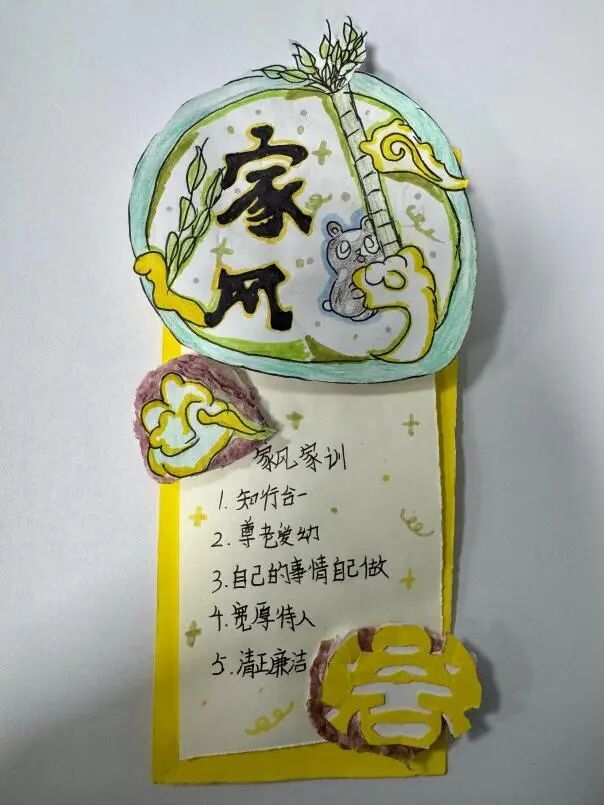 家风
家风家训
1. 知行合一
2. 尊老爱幼
3. 自己的事情自己做
4. 宽厚待人
5. 清正廉洁